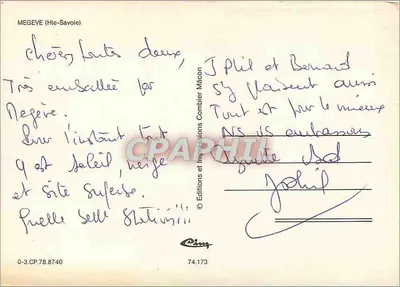 MEGEVE (Hte-Savoie)
Chères toutes deux,
Très emballée par
Megève.
Pour l'instant tout
y est soleil, neige
et site superbe.
Quelle belle station!!!
0-3.CP.78.8740
© Editions et Impressions Combier Mâcon
CPARHTI
J Phil et Bernard
s'y plaisent aussi
Tout est pour le mieux
Ns vs embrassons
J Phil
Cim
74.173